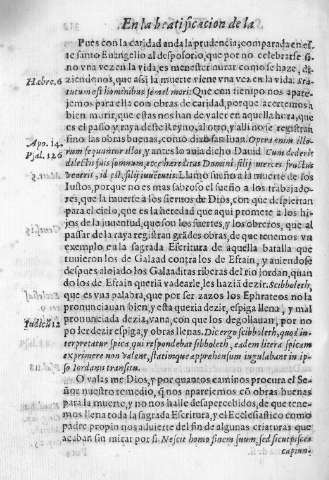 En la beatificacion de la
Pues con la caridad anda la prudencia, comparada en es
te santo Euangelio al desposorio, que por no celebrarse si
no vna vez en la vida, es menester mirar como se haze, di
Hebre. 6 ziendonos, que assi la muerte viene vna vez en la vida: sta-
tutum est hominibus semel mori: Que con tiempo nos apare-
jemos para ella con obras de caridad, porque acertemos a
bien morir, que estas nos han de valer en aquella hora, que
es el passo y raya deste reyno, al otro, y alli no se registran
sino las obras buenas, como dixo san Iuan. Opera enim illo-
Apo. 14. rum sequuntur illos, y antes lo auia dicho Dauid. Cum dederit
Psal. 126 dilectis suis somnum, ecce hereditas Domini filij, merces fructus
ventris, id est, filij iuuentutis. Llamò sueño a la muerte de los
Iustos, porque no es mas sabroso el sueño a los trabajado-
res, que la muerte a los sieruos de Dios, con que despiertan
para el cielo, que es la heredad que aqui promete a los hi-
jos de la juuentud, que son los fuertes, y los obreros, que al
passar de la raya registran grãdes obras, de que tenemos vn
exemplo en la sagrada Escritura de aquella batalla que
tuuieron los de Galaad contra los de Efrain, y auiendose
despues alojado los Galaaditas riberas del rio Iordan, quan
do los de Efrain querià vadearle, les hazià dezir. Scibboleth,
que es vna palabra, que por ser zazos los Ephrateos no la
pronunciauan bien, y esta queria dezir, espiga llena, y mal
Iudicũ 12 pronunciada dezia, vana, con que los degollauan, por no
poder dezir espiga, y obras llenas. Dic ergo scibboleth, quod in-
terpretatur spica, qui respondebat sibboleth, eadem litera spicam
exprimere non valens, statimque apprehensum iugulabant in ip-
so Iordanis transitu.
O valas me Dios, y por quantos caminos procura el Se-
ñor nuestro remedio, q̃ nos aparejemos cõ obras buenas
para la muerte, y no nos halle desapercebidos, de que tene-
mos llena toda la sagrada Escritura, y el Ecclesiastico como
padre propio nos aduierte del fin de algunas criaturas que
acaban sin mirar por si. Nescit homo finem suum, sed sicut pisces
capiun-